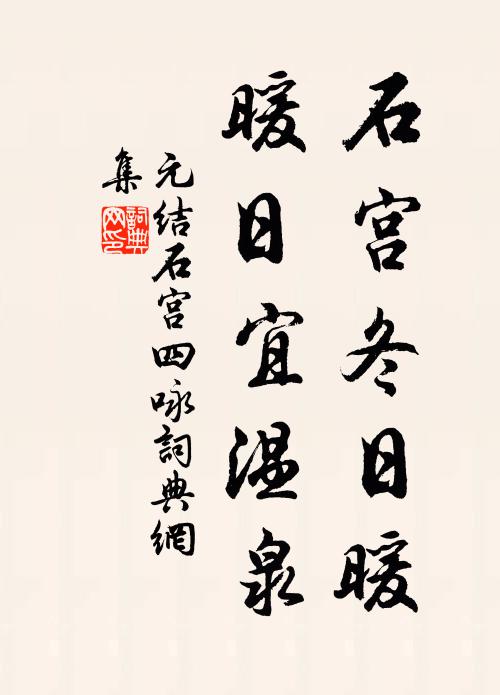 石宫冬日暖
暖日宜温泉
元结石宫四咏詞典網
集
詞典
网印